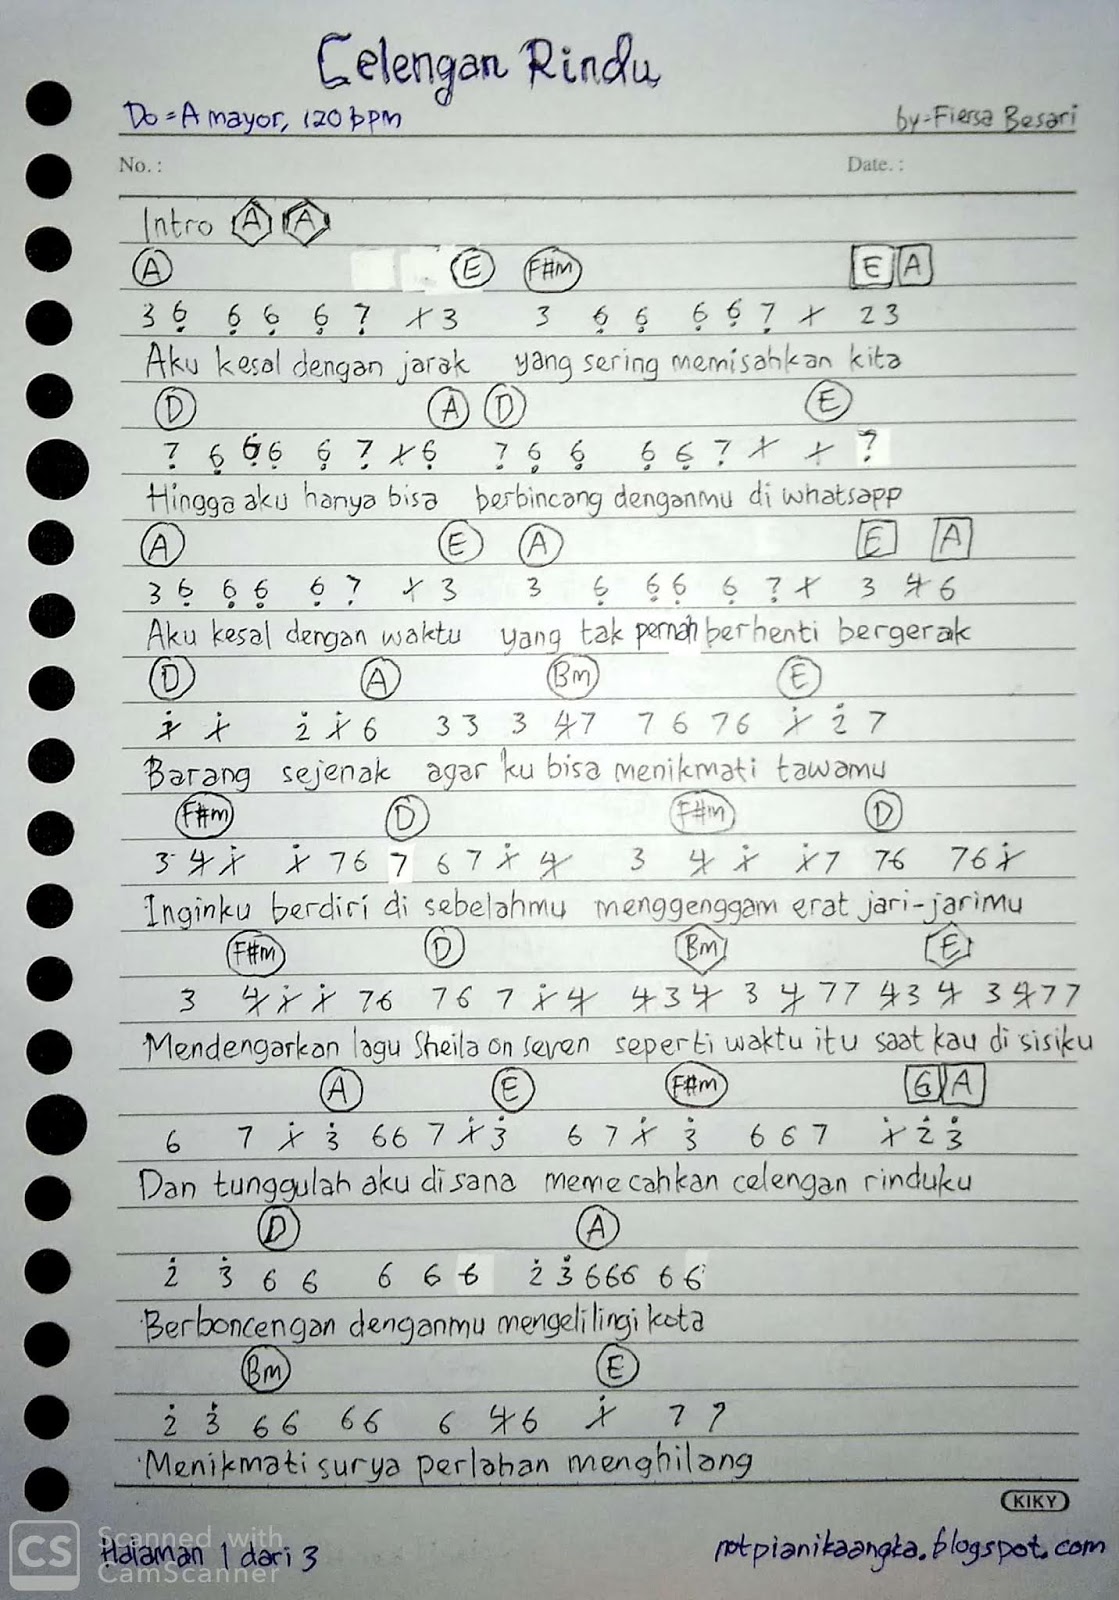 Celengan Rindu
Do = A mayor, 120 bpm by = Fiersa Besari
No. : Date. :
Intro A A
A E F#m E A
3 6̣ 6̣ 6̣ 6̣ 7̣ 1̸ 3 3 6̣ 6̣ 6̣ 6̣ 7̣ 1̸ 2 3
Aku kesal dengan jarak yang sering memisahkan kita
D A D E
7̣ 6̣ 6̣ 6̣ 6̣ 7̣ 1̸ 6̣ 7̣ 6̣ 6̣ 6̣ 6̣ 7̣ 1̸ 1̸ 7̣
Hingga aku hanya bisa berbincang denganmu di whatsapp
A E A E A
3 6̣ 6̣ 6̣ 6̣ 7̣ 1̸ 3 3 6̣ 6̣ 6̣ 6̣ 7̣ 1̸ 3 4̸ 6
Aku kesal dengan waktu yang tak pernah berhenti bergerak
D A Bm E
1̸̇ 1̸̇ 2̇ 1̸̇ 6 3 3 3 4̸ 7 7 6 7 6 1̸̇ 2̇ 7
Barang sejenak agar ku bisa menikmati tawamu
F#m D F#m D
3 4̸ 1̸̇ 1̸̇ 7 6 7 6 7 1̸̇ 4̸ 3 4̸ 1̸̇ 1̸̇ 7 7 6 7 6 1̸̇
Inginku berdiri di sebelahmu menggenggam erat jari-jarimu
F#m D Bm E
3 4̸ 1̸̇ 1̸̇ 7 6 7 6 7 1̸̇ 4̸ 4̸ 3 4̸ 3 4̸ 7 7 4̸ 3 4̸ 3 4̸ 7 7
Mendengarkan lagu Sheila on seven seperti waktu itu saat kau di sisiku
A E F#m G A
6 7 1̸̇ 3̇ 6 6 7 1̸̇ 3̇ 6 7 1̸̇ 3̇ 6 6 7 1̸̇ 2̇ 3̇
Dan tunggulah aku di sana memecahkan celengan rinduku
D A
2̇ 3̇ 6 6 6 6 6 2̇ 3̇ 6 6 6 6 6
Berboncengan denganmu mengelilingi kota
Bm E
2̇ 3̇ 6 6 6 6 6 4̸ 6 1̸̇ 7 7
Menikmati surya perlahan menghilang
KIKY
CS Scanned with CamScanner
Halaman 1 dari 3 notpianikaangka.blogspot.com